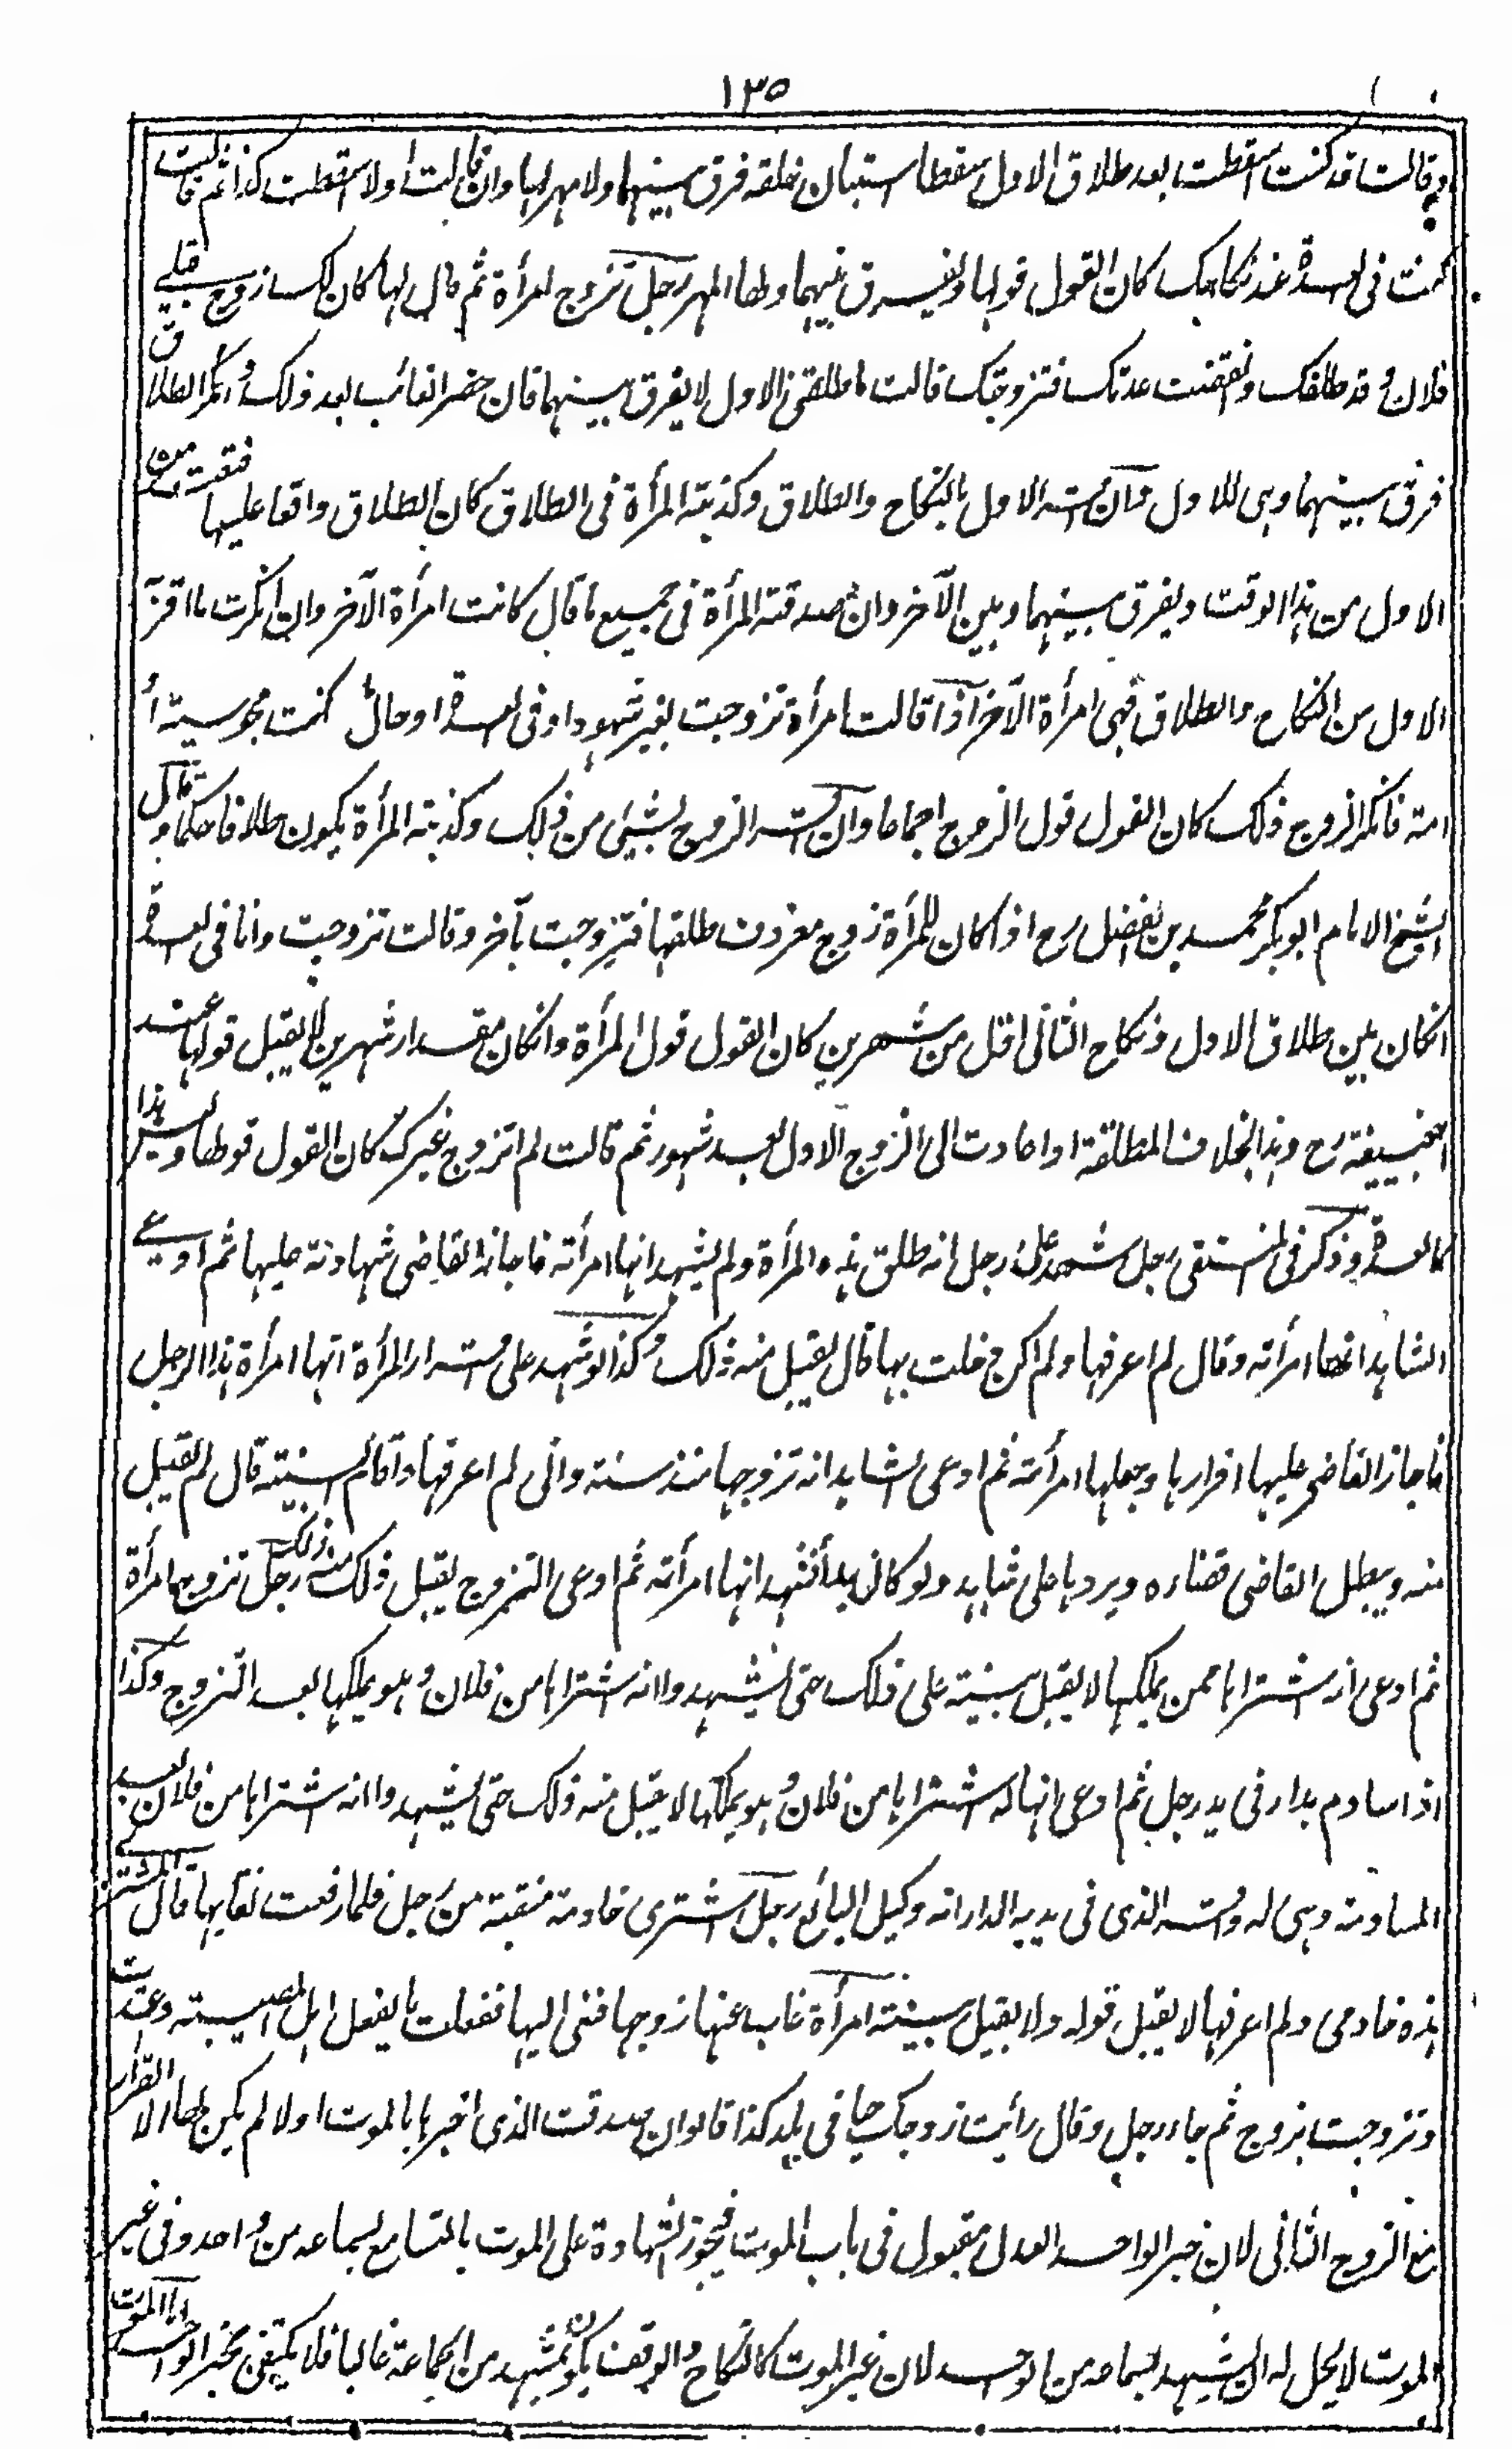 ١٣٥
وقالت قد كنت اسقطت بعد طلاق الاول سقطا استبان خلقه فرق بينهما ولا مهر لها وان قالت اولا اسقطت كذا ثم قالت
كنت فى العدة عند نكاحك كان القول قولها ويفرق بينهما ولها المهر رجل تزوج امرأة ثم قال لها كان لك زوج قبلى
فلان وقد طلقك وانقضت عدتك فتزوجتك قالت ما طلقنى الاول لا يفرق بينهما فان حضر الغائب بعد ذلك وانكر الطلاق
فرق بينهما وهى للاول وان اقر الاول بالنكاح والطلاق وكذبته المرأة فى الطلاق كان الطلاق واقعا عليها فتعتد من
الاول من هذا الوقت ويفرق بينهما وبين الآخر وان صدقته المرأة فى جميع ما قال كانت امرأة الآخر وان انكرت ما اقر
الاول من النكاح والطلاق فهى امرأة الآخر اذا قالت امرأة تزوجت بغير شهود او فى العدة او حال كنت مجوسية او
امة فانكر الزوج ذلك كان القول قول الزوج اجماعا وان اقر الزوج بشيئ من ذلك وكذبته المرأة يكون طلاقا حكما وقال
الشيخ الامام ابو بكر محمد بن الفضل رح اذا كان للمرأة زوج معروف طلقها فتزوجت بآخر وقالت تزوجت وانا فى العدة
انكان بين طلاق الاول ونكاح الثانى اقل من شهرين كان القول قول المرأة وانكان مقدار شهرين لا يقبل قولها عند
ابيحنيفة رح وهذا بخلاف المطلقة اذا عادت الى الزوج الاول بعد شهور ثم قالت لم اتزوج غيرك كان القول قولها وليس هذا
كالعدة وذكر فى المنتقى رجل شهد على رجل انه طلق هذه المرأة ولم يشهد انها امرأته فاجاز القاضى شهادته عليها ثم ادعى
الشاهد انها امرأته وقال لم اعرفها ولم اكن دخلت بها قال يقبل منه ذلك وكذا لو شهد على اقرار المرأة انها امرأة هذا الرجل
فاجاز القاضى عليها اقرارها وجعلها امرأته ثم ادعى الشاهد انه تزوجها منذ سنة وانى لم اعرفها واقام البينة قال لم يقبل
منه ويبطل القاضى قضاءه ويردها على شاهد ولو كانا شهدا انها امرأته ثم ادعى التزوج يقبل ذلك منه رجل تزوج امرأة
ثم ادعى انه اشتراها ممن يملكها لا يقبل بينته على ذلك حتى يشهدوا انه اشتراها من فلان وهو يملكها بعد التزوج وكذا
اذا ساوم بدار فى يد رجل ثم ادعى انها له اشتراها من فلان وهو يملكها لا يقبل منه ذلك حتى يشهدوا انه اشتراها من فلان بعد
المساومة وهى له واقر الذى فى يديه الدار انه وكيل البائع رجل اشترى خادمة منتقبة من رجل فلما رفعت نقابها قال المشترى
هذه خادمى ولم اعرفها لا يقبل قوله ولا يقبل بينته امرأة غاب عنها زوجها فنعى اليها ففعلت ما يفعل اهل المصيبة واعتدت
وتزوجت بزوج ثم جاء رجل وقال رأيت زوجك حيا فى بلد كذا قالوا ان صدقت الذى اخبرها بالموت اولا لم يكن لها الا القرار
مع الزوج الثانى لان خبر الواحد العدل مقبول فى باب الموت فيجوز الشهادة على الموت بالتسامع لسماعه من واحد وفى غير
الموت لا يحل له ان يشهد لسماعه من الواحد لان غير الموت كالنكاح والوقف يكون بمشهد من الجماعة غالبا فلا يكتفى بخبر الواحد اما الموت